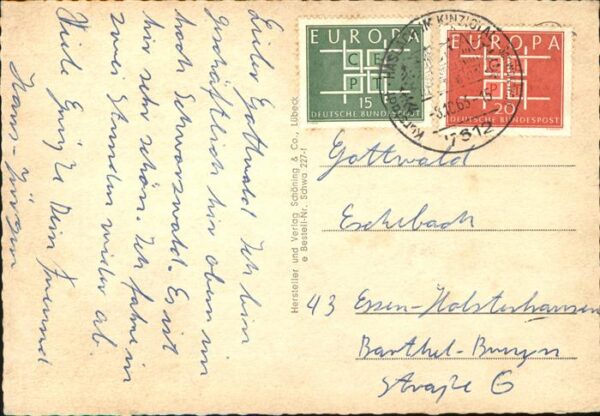 Lieber Gottwald Ich bin
Geschäftlich hir oben im
hoch Schwarzwald. Es ist
hir sehr schön. Ich fahre in
zwei Stunden wider ab.
Viele Grüße Dein Freund
Hans-Jürgen
Hersteller und Verlag Schöning & Co., Lübeck
Bestell-Nr. Schwa 227-f
EUROPA
CE
PT
15
DEUTSCHE BUNDESPOST
EUROPA
20
DEUTSCHE BUNDESPOST
IM KINZIGTAL
7612
Gottwald
Eschebach
43 Essen-Holsterhausen
Barthel-Bruyn
Straße 6